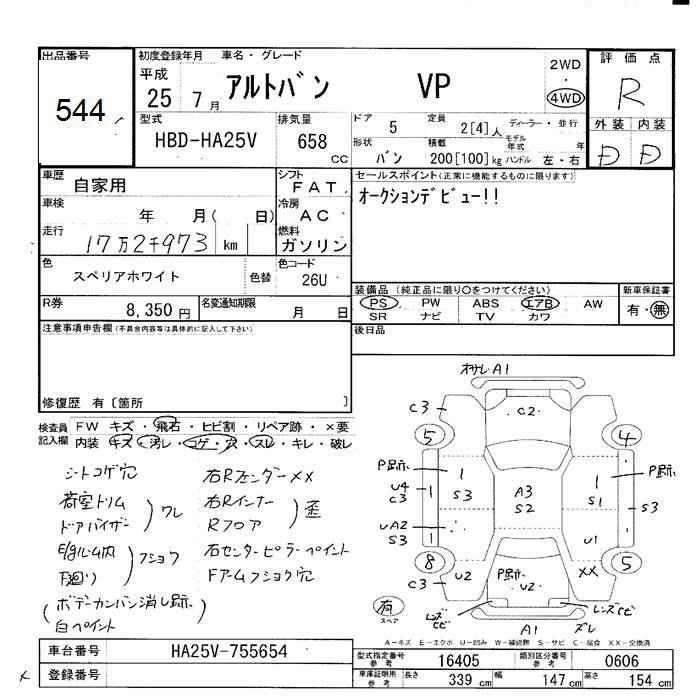 出品番号
544
初度登録年月 車名・グレード
平成 25 7 月
アルトバン VP
2WD
4WD
評価点
R
外装 内装
D D
型式
HBD-HA25V
排気量
658 CC
ドア 5
定員 2[4] 人
ディーラー・並行
形状 バン
積載 200[100] kg
モデル年式 年
ハンドル 左・右
車歴 自家用
シフト FAT
セールスポイント(正常に機能するものに限ります)
オークションデビュー!!
車検 年 月( 日)
冷房 AC
走行 17万2千973 km
燃料 ガソリン
色 スペリアホワイト
色替
色コード 26U
装備品 (純正品に限り○をつけてください)
PS PW ABS エアB AW
SR ナビ TV カワ
新車保証書
有・無
R券 8,350 円
名変通知期限 月 日
注意事項申告欄(不具合内容等は具体的に記入して下さい)
後日品
修復歴 有〔箇所 〕
検査員記入欄
FW キズ・飛石・ヒビ割・リペア跡・×要
内装 キズ・汚レ・コゲ・穴・スレ・キレ・破レ
シートコゲ穴
荷室トリム
ドアバイザー
ワレ
E/gルーム内
下廻り
フショク
(ボデーカンバン消し跡)
白ペイント
右Rフェンダー××
右Rインナー
Rフロア
歪
右センターピラーペイント
Fアームフショク穴
オサレ A1
C3
C2
5
4
P跡
1
S3
U4
C3
1
A3
S2
1
S1
P跡
S3
UA2
S3
1
U1
8
5
C3
U2
P跡
U2
××
有
スペア
レンズヒビ
レンズヒビ
A1
ズレ
A-キズ E-エクボ U-凹み W-補修跡 S-サビ C-腐食 XX-交換済
車台番号 HA25V-755654
登録番号
型式指定番号 参考 16405
類別区分番号 参考 0606
車庫証明用 参考 長さ 339 cm 幅 147 cm 高さ 154 cm